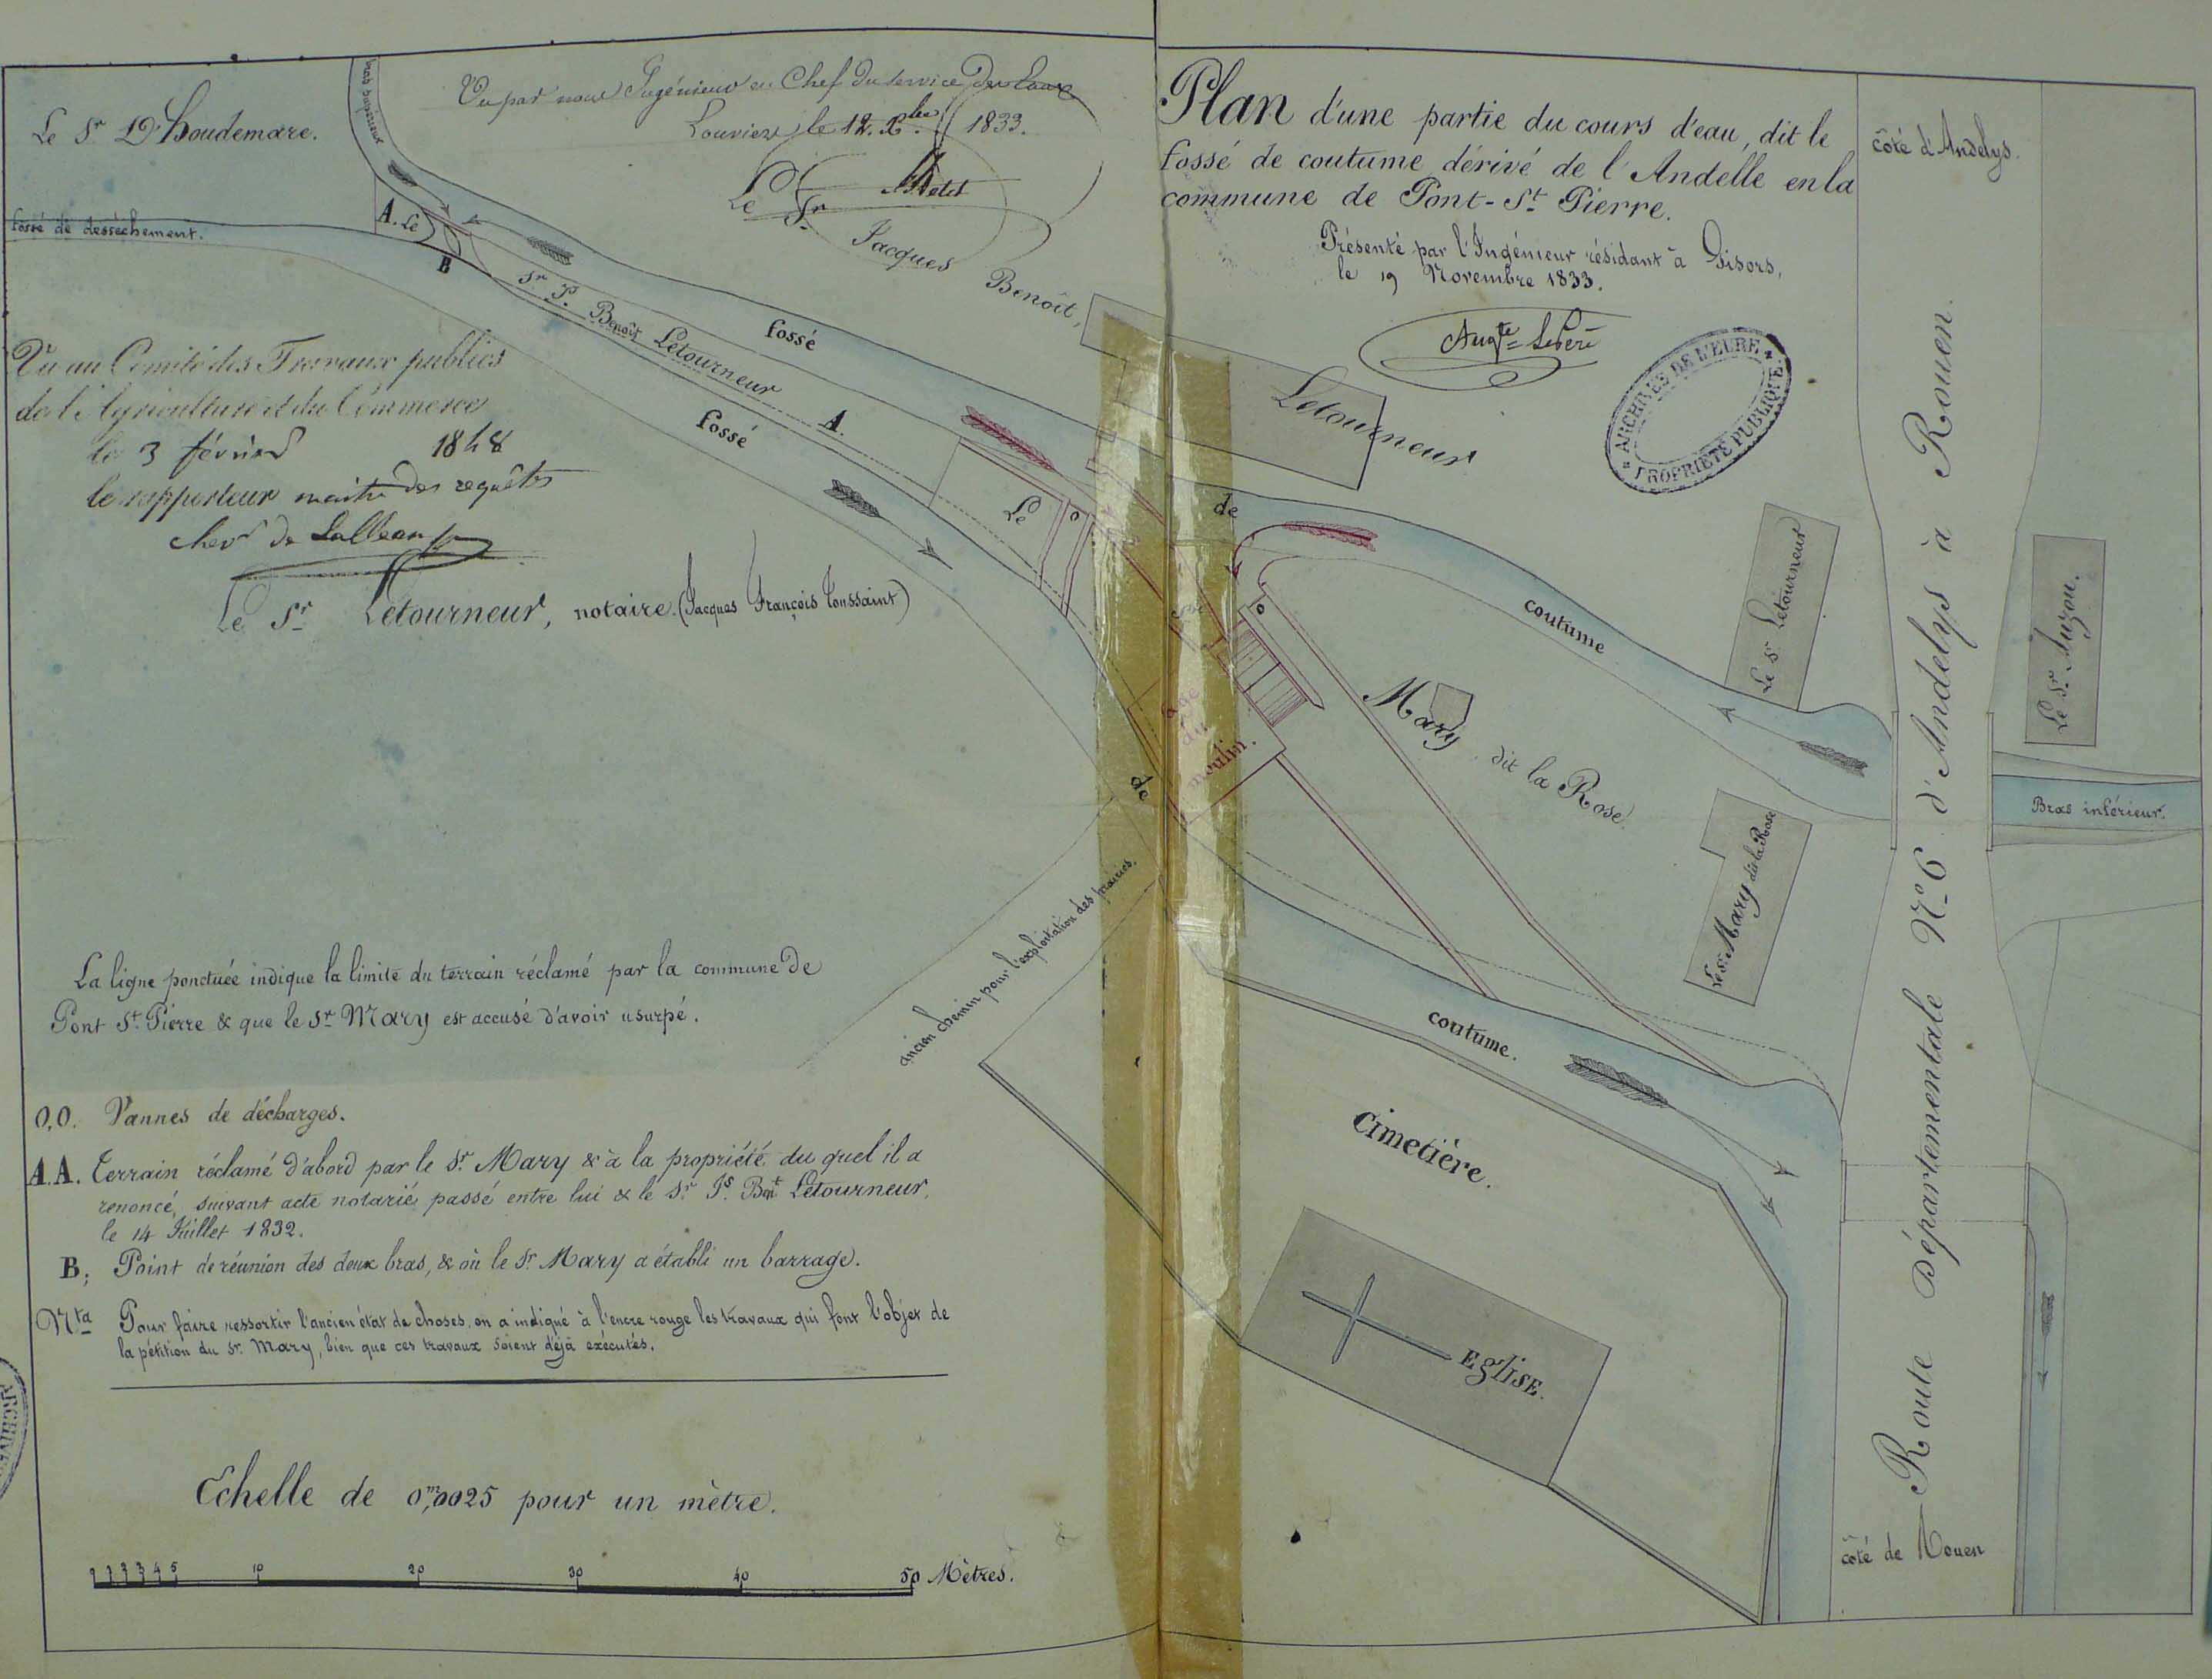 Plan d'une partie du cours d'eau, dit le
fossé de coutume dérivé de l'Andelle en la
commune de Pont-St Pierre.
Présenté par l'Ingénieur résidant à Gisors,
le 19 Novembre 1833.
ARCHIVES DE L'EURE
PROPRIÉTÉ PUBLIQUE
Vu par nous Ingénieur en Chef du service
Louviers le 12. Xbre 1833.
Le Sr D'Houdemare.
fossé de desséchement.
A. Le
B
Sr J. Benoît Letourneur A.
Le Sr Jacques Benoît,
Letourneur
fossé
de
coutume
fossé
de
coutume.
Le
o
o
du
moulin.
Mary dit la Rose.
Vu au Comité des Travaux publics
de l'Agriculture et du Commerce
le 3 février 1848
le rapporteur maitre des requêtes
Le Sr Letourneur, notaire. (Jacques François Toussaint)
ancien chemin pour l'exploitation des prairies.
Le Sr Letourneur
Le Sr Mary dit la Rose
Le Sr Auzou.
Bras inférieur.
côté d'Andelys.
Route Départementale No 6 d'Andelys à Rouen.
côté de Rouen
Cimetière.
Eglise.
La ligne ponctuée indique la limite du terrain réclamé par la commune de
Pont St Pierre & que le Sr Mary est accusé d'avoir usurpé.
O,O. Vannes de décharges.
A.A. Terrain réclamé d'abord par le Sr Mary & à la propriété du quel il a
renoncé, suivant acte notarié passé entre lui & le Sr Js Bnt Letourneur,
le 14 Juillet 1832.
B; Point de réunion des deux bras, & où le Sr Mary a établi un barrage.
Nta Pour faire ressortir l'ancien état de choses, on a indiqué à l'encre rouge les travaux qui font l'objet de
la pétition du Sr Mary, bien que ces travaux soient déjà exécutés.
Echelle de 0m,0025 pour un mètre.
1 2 3 4 5 10 20 30 40 50 Mètres.